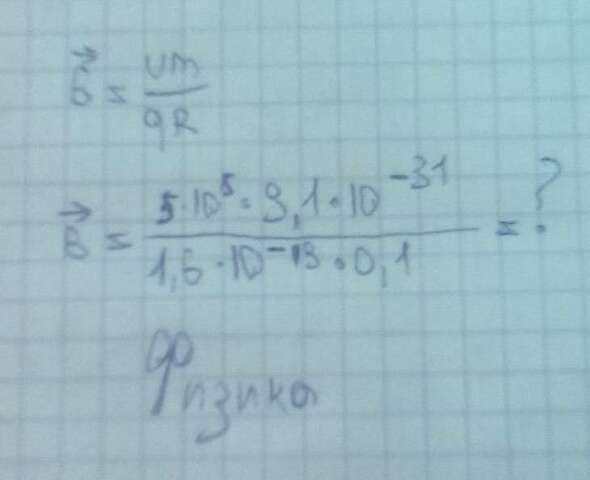 B = vm / qR
B = 5·10⁵·9,1·10⁻³¹ / 1,6·10⁻¹⁹·0,1 = ?
Физика